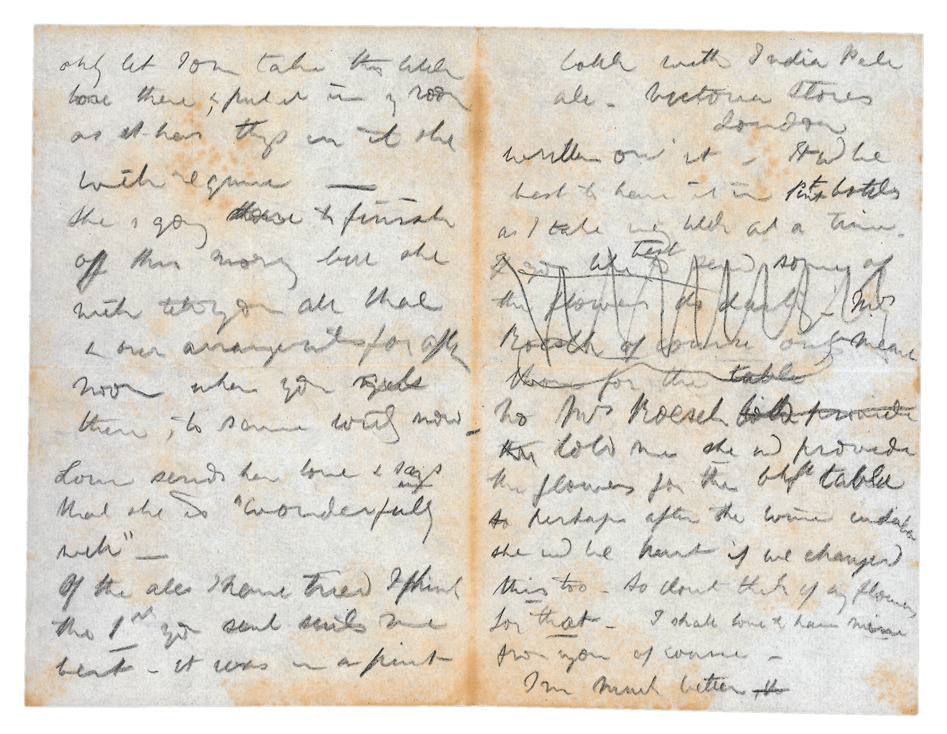 only let Tom take this little
box there, & put it in my room
as it has things in it she
will require —
She is going there to finish
off this morng but she
will tell you all that
& our arrangements for after
noon when you
there, to some now -
Louie sends her love & says
that she is "wonderfully
well" —
Of the ales I have tried I think
the 1st you sent suits me
best - it was in a pint
bottle with India Pale
ale - Victoria Stores
London
written on it - It wd be
best to have it in pint bottles
as I take very little at a time.
I like to send some of
the flowers Mrs
Roesch of course only meant
them for the table
No Mrs Roesch told provide
told me she wd provide
the flowers for the bkfst table
so perhaps after the wine
she wd be hurt if we changed
this too - So dont think of any flowers
for that - I shall love to have mine
from you of course -
I'm much better